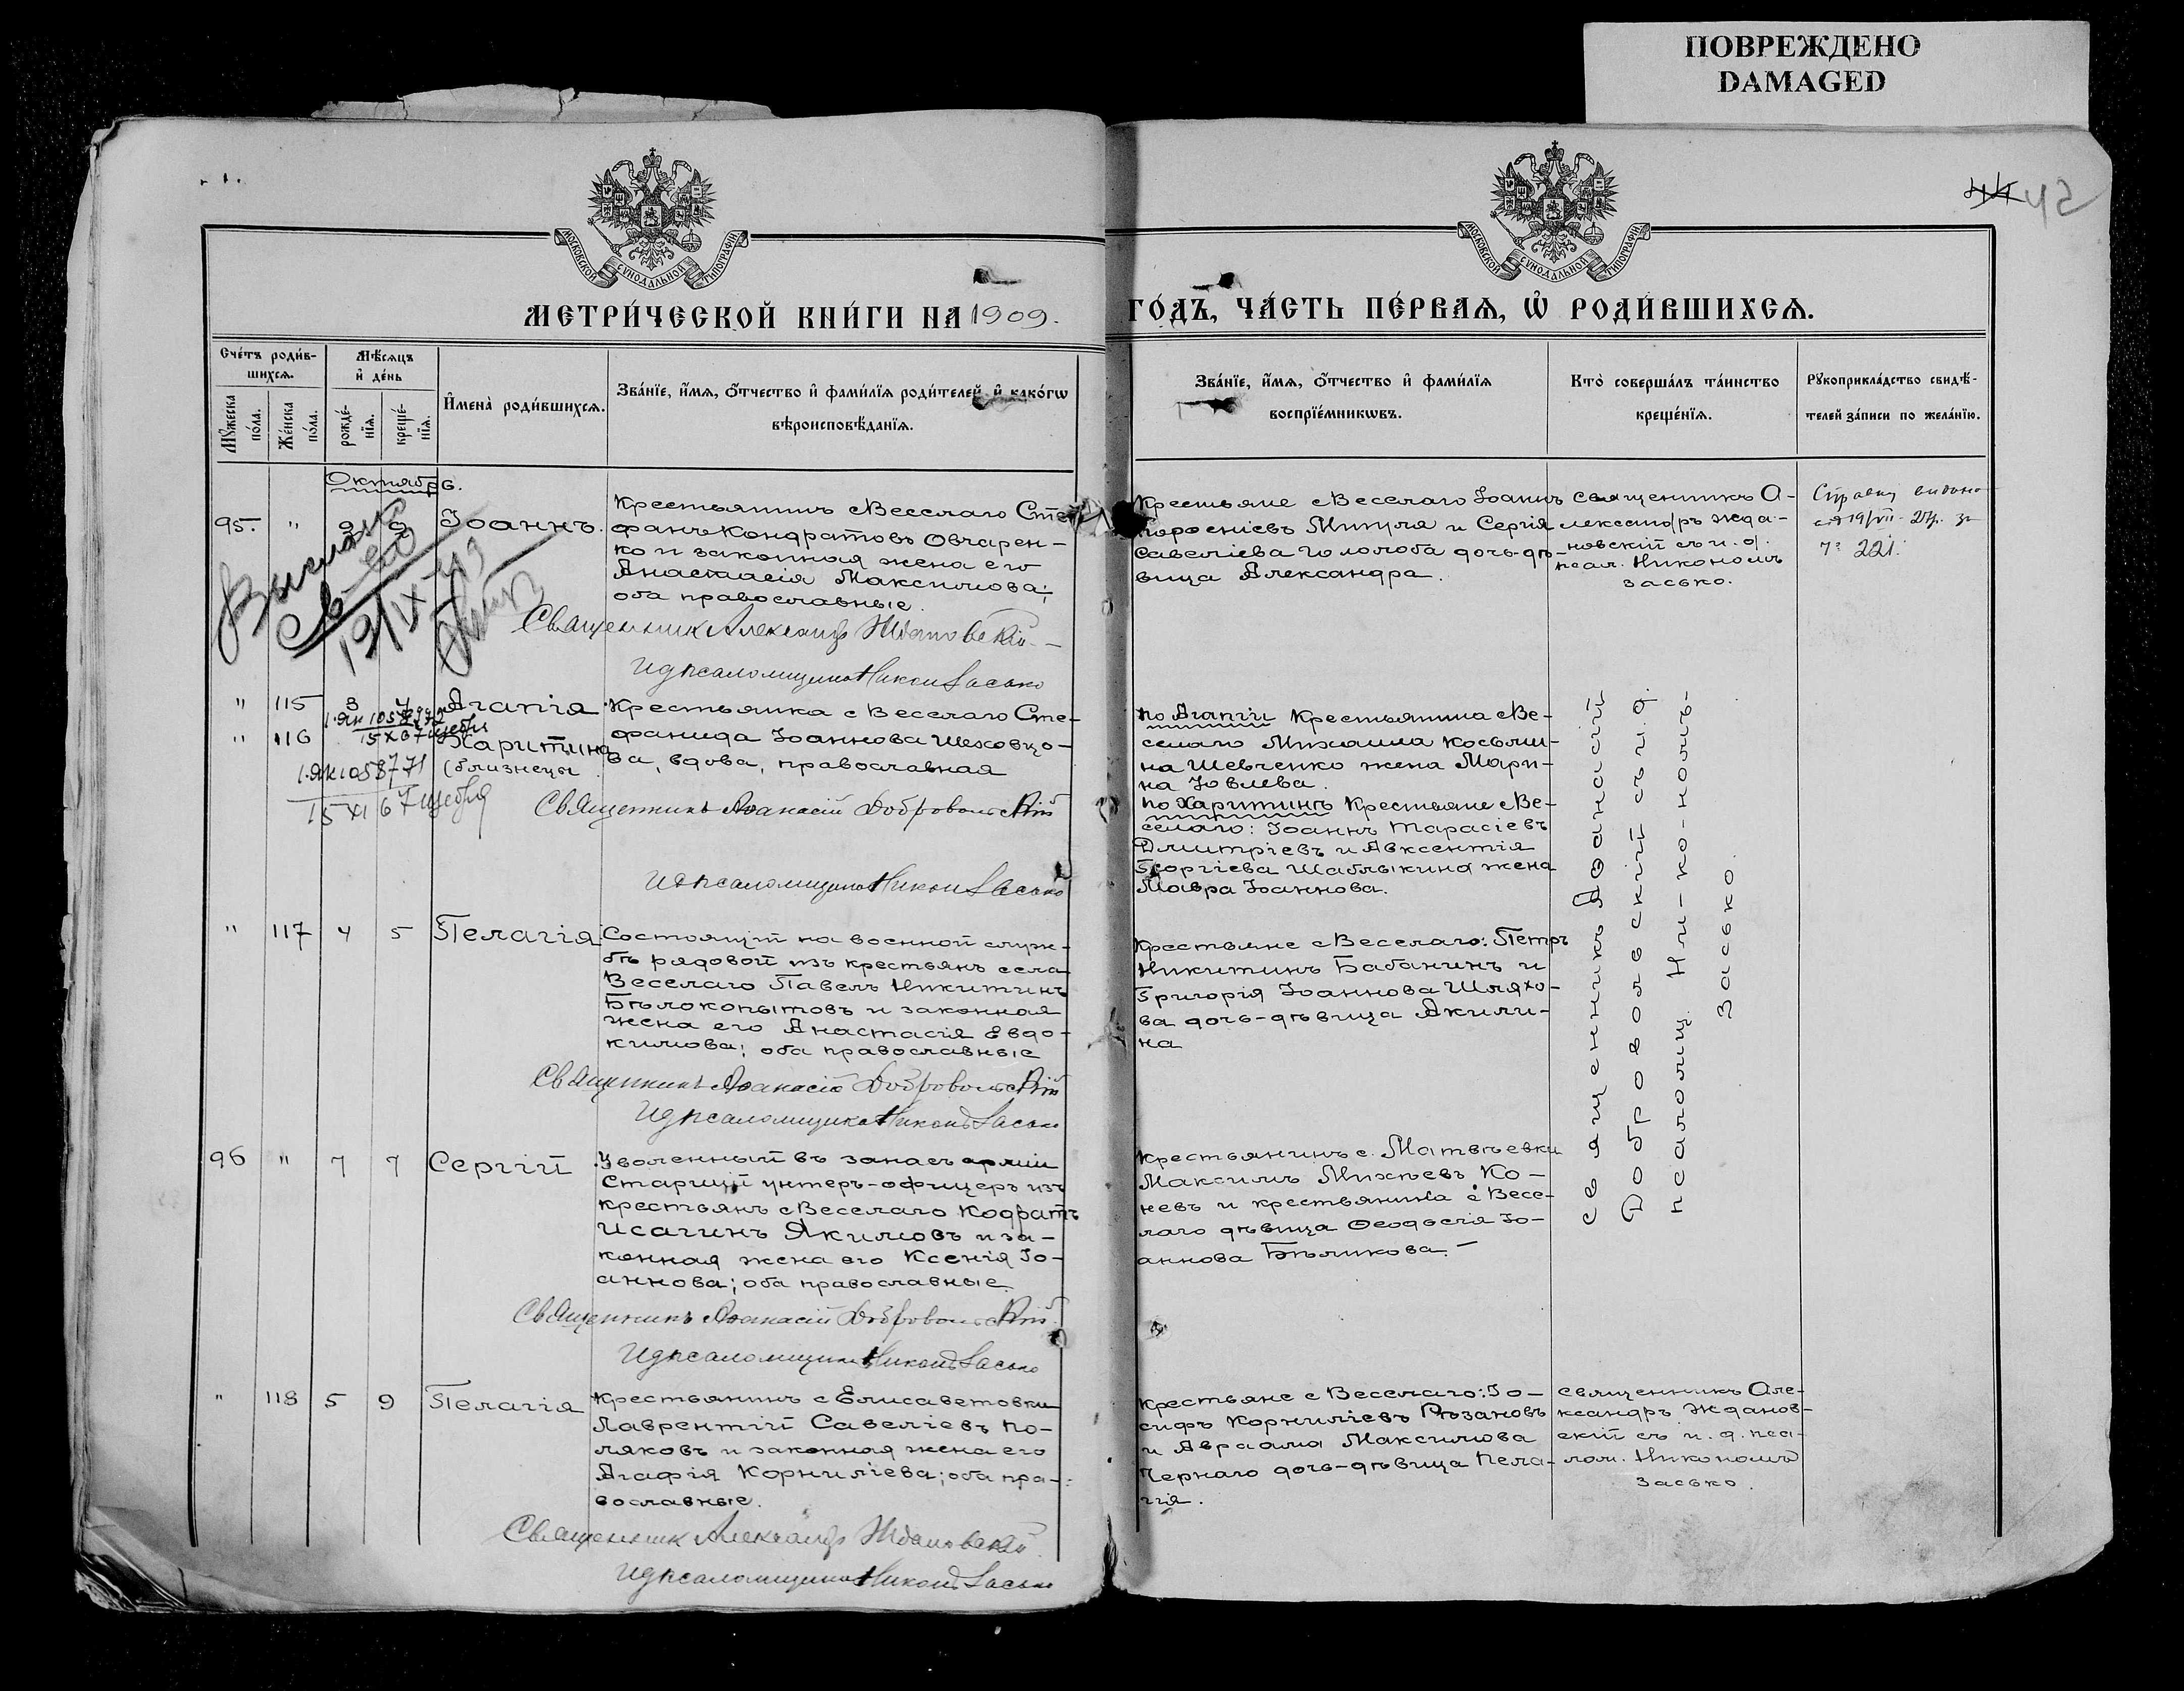 ПОВРЕЖДЕНО
DAMAGED
42
МОСКОВСКОЙ СУНОДАЛЬНОЙ ТИПОГРАФІИ
МОСКОВСКОЙ СУНОДАЛЬНОЙ ТИПОГРАФІИ
МЕТРИ́ЧЕСКОЙ КНИ́ГИ НА 1909.
ГО́ДЪ, ЧА́СТЬ ПЕ́РВАѦ, Ѡ҆ РОДИ́ВШИХСѦ.
Сче́тъ роди́в-
шихсѧ.
Мѣ́сѧцъ
и҆ де́нь
Мꙋ́жеска
по́ла.
Же́нска
по́ла.
рожде́-
нїѧ.
креще́-
нїѧ.
И҆мена̀ роди́вшихсѧ.
Зва́нїе, и҆́мѧ, ѻ҆́тчество и҆ фами́лїѧ роди́телей, и҆ како́гѡ
вѣроисповѣ́данїѧ.
Зва́нїе, и҆́мѧ, ѻ҆́тчество и҆ фами́лїѧ
воспрїе́мникѡвъ.
Кто̀ соверша́лъ та́инство
креще́нїѧ.
Рꙋкоприкла́дство свидѣ́-
телей за́писи по жела́нїю.
Октябрь.
95. " 2 2 Іоаннъ.
Крестьянинъ с Веселаго Сте-
фанъ Кондратовъ Овчарен-
ко и законная жена его
Анастасія Максимова;
оба православные.
Священник Александр Ждановскій
И д псаломщика Никон Засько
Крестьяне с Веселаго Іоаннъ
Савеліева Голопоба дочь-дѣ-
вица Александра.
священникъ А-
лександръ Жда-
новскій съ и. д.
псал. Никономъ
Засько.
Справку выдано
19/VII
№ 221.
12/IX 49
" 115 3 4 Агапія
" 116
Харитина
(близнецы
Крестьянка с Веселаго Сте-
фанида Іоаннова Шеховцо-
ва, вдова, православная
Священникъ Аѳанасій Добровольскій
И д псаломщика Никон Засько
по Агапіи Крестьянина с Ве-
селаго Михаила Косьми-
на Шевченко жена Мари-
на Іовлева.
по Харитинѣ Крестьяне с Ве-
селаго: Іоаннъ Тарасіевъ
Дмитріевъ и Авксентія
Георгіева Шаблыкина жена
Мавра Іоаннова.
Священникъ Аѳанасій
Добровольскій съ и. д.
псаломщ. Ни-ко-номъ-
Засько
" 117 4 5 Пелагія
Состоящій на военной служ-
бѣ рядовой изъ крестьянъ села
Веселаго Павелъ Никитинъ
Бѣлокопытовъ и законная
жена его Анастасія Евдо-
кимова; оба православные
Священникъ Аѳанасій Добровольскій
И д псаломщика Никонъ Засько
Крестьяне с Веселаго: Петръ
Никитинъ Бабанинъ и
Григорія Іоаннова Шляхо-
ва дочь-дѣвица Акили-
на
96 " 7 7 Сергій
Уволенный въ запасъ арміи
старшій унтеръ-офицеръ изъ
крестьянъ с Веселаго Кодратъ
Исагинъ Якимовъ и за-
конная жена его Ксенія Іо-
аннова; оба православные.
Священникъ Аѳанасій Добровольскій
И д псаломщика Никонъ Засько
Крестьянинъ с. Матвѣевки
Максимъ Михѣевъ Ко-
невъ и крестьянина с Весе-
лаго дѣвица Ѳеодосія Іо-
аннова Бѣликова.
" 118 5 9 Пелагія
Крестьянинъ с Елисаветовки
Лаврентій Савеліевъ По-
ляковъ и законная жена его
Агафія Корниліева; оба пра-
вославные.
Священник Александр Ждановскій
И д псаломщика Никонъ Засько
Крестьяне с Веселаго: Іо-
сифъ Корниліевъ Рѣзановъ
и Авраама Максимова
Чернаго дочь-дѣвица Пела-
гія.
священникъ Але-
ксандръ Жданов-
скій съ и. д. пса-
лом. Никономъ
Засько.